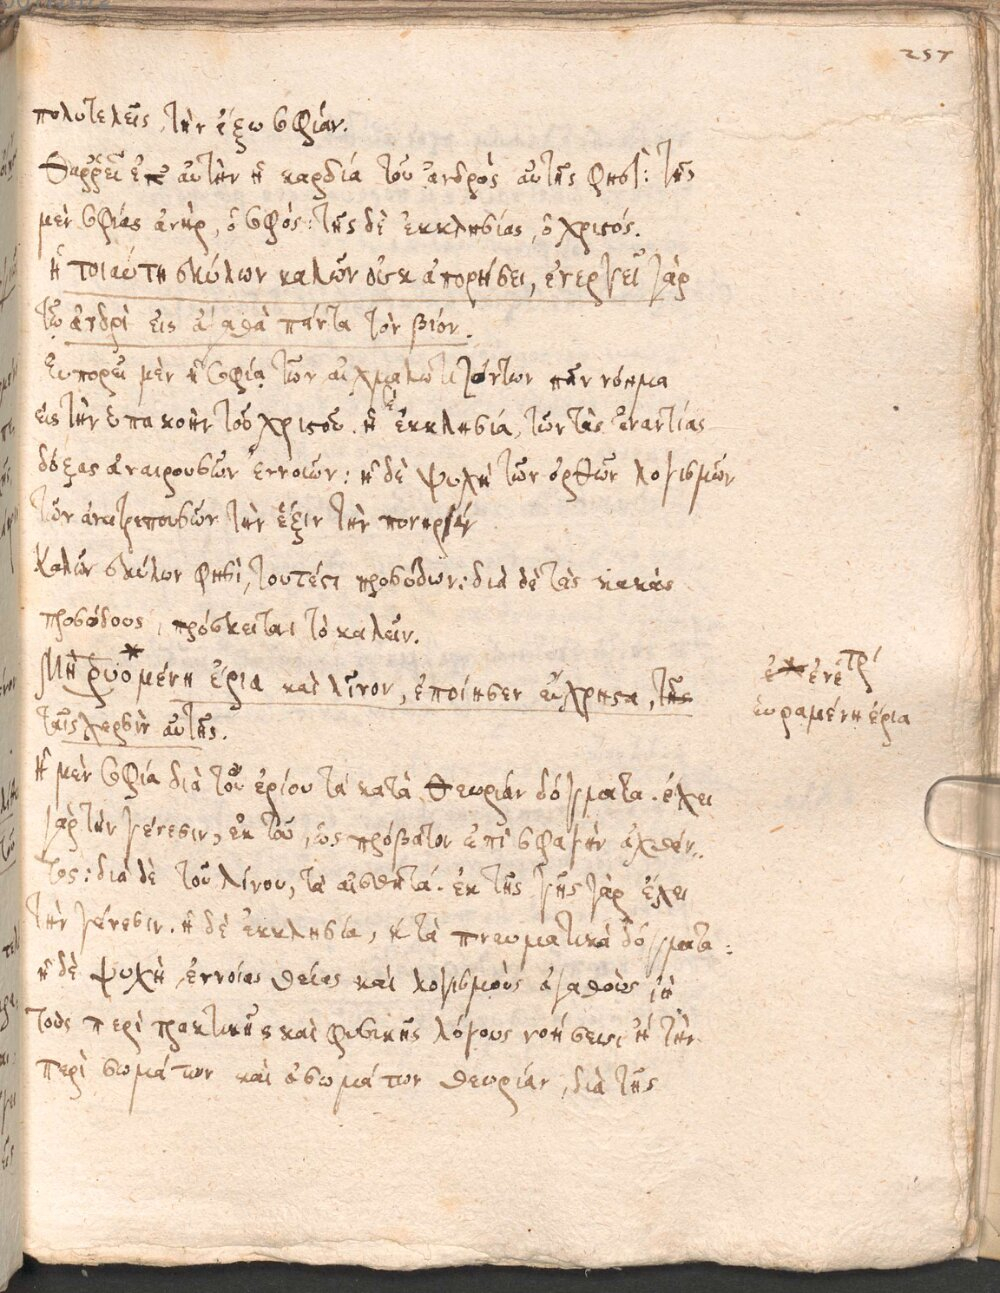 257
πολυτελεῖς, τὴν ἔξω σοφίαν.
Θαρρεῖ ἐπ αὐτὴν ἡ καρδία τοῦ ἀνδρὸς αὐτῆς φησὶ: τῆς
μὲν σοφίας ἀνὴρ, ὁ σοφός: τῆς δὲ ἐκκλησίας, ὁ χριστός.
Ἡ τοιαύτη σκύλων καλῶν οὐκ ἀπορήσει, ἐνεργεῖ γὰρ
τῶ ἀνδρὶ εἰς ἀγαθὰ πάντα τὸν βίον.
Εὐπορεῖ μὲν ἡ σοφία τῶν αἰχμαλωτιζόντων πᾶν νόημα
εἰς τὴν ὑπακοὴν τοῦ χριστοῦ. ἡ ἐκκλησία, τῶν τὰς ἐναντίας
δόξας ἀναιρουσῶν ἐννοιῶν: ἡ δὲ ψυχὴ τῶν ὀρθῶν λογισμῶν
τῶν ἀνατρεπουσῶν τὴν ἕξιν τὴν πονηράν
Καλῶν σκύλων φησὶ, τουτέστι προσόδων: διὰ δὲ τὰς κακὰς
προσόδους, πρόσκειται τὸ καλεῖν.
Μηρυομένη ἔρια καὶ λῖνον, ἐποίησεν εὔχρηστα, τῆς
ταῖς χερσὶν αὐτῆς.
ἡ μὲν σοφία διὰ τοῦ ἐρίου τὰ κατὰ θεωρίαν δόγματα. ἔχει
γὰρ τὴν γένεσιν, ἐκ τοῦ, ὡς πρόβατον ἐπὶ σφαγὴν ἀχθέν
τος: διὰ δὲ τοῦ λίνου, τὰ αἰσθητά. ἐκ τῆς γῆς γὰρ ἔχει
τὴν γένεσιν. ἡ δὲ ἐκκλησία, τὰ πνευματικὰ δόγματα:
ἡ δὲ ψυχὴ ἐννοίας θείας καὶ λογισμοὺς ἀγαθοὺς ἢ
τοὺς περὶ πρακτικῆς καὶ φυσικῆς λόγους νοήσεως, ἢ τὴν
περὶ σωμάτων καὶ ἀσωμάτων θεωρίαν, διὰ τῆς
εὑραμένη ἔρια